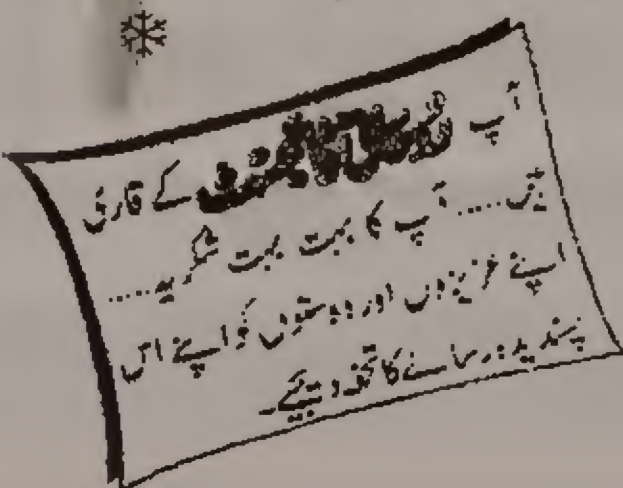 آپ کے قاری
ہیں..... آپ کا بہت بہت شکریہ.....
اپنے عزیزوں اور دوستوں کو اپنے اس
پسندیدہ رسالے کا تحفہ دیجئے۔